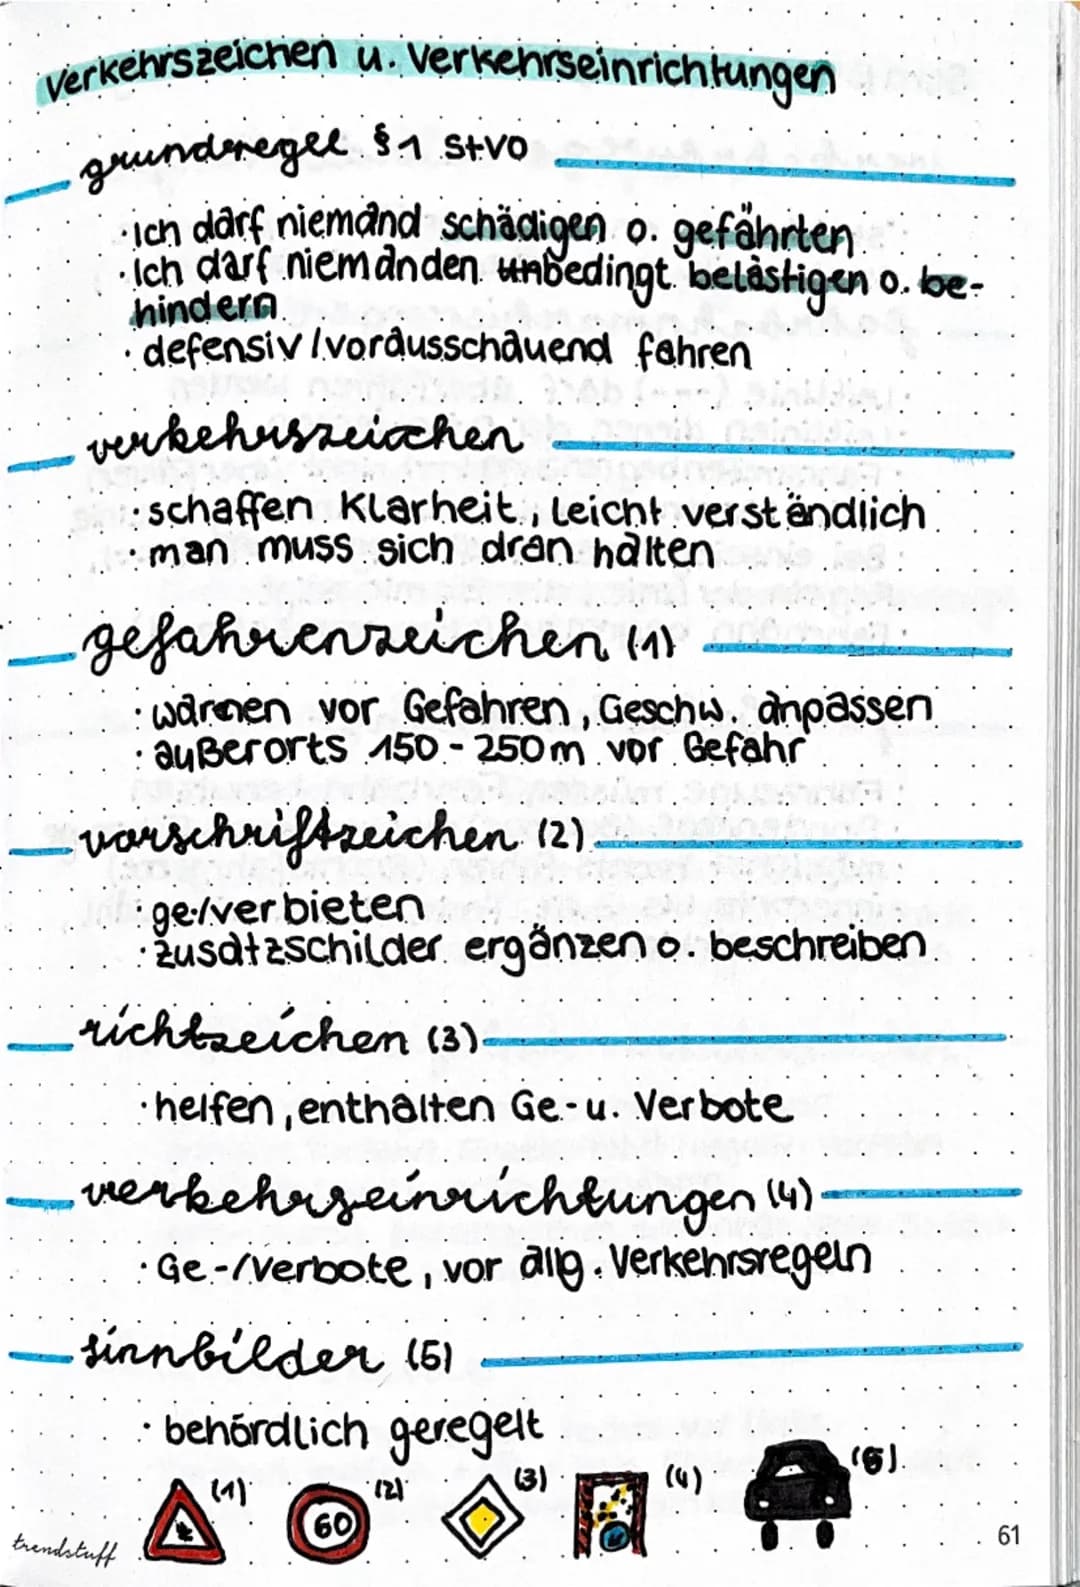 Verkehrszeichen u. Verkehrseinrichtungen
grundregel §1 StVO
· Ich darf niemand schädigen o. gefährten
· Ich darf niemanden unbedingt belästigen o. be-
hindern
· defensiv/vorausschauend fahren
verkehrszeichen
· schaffen Klarheit, leicht verständlich
· man muss sich dran halten
gefahrenzeichen (1)
· warnen vor Gefahren, Geschw. anpassen
· außerorts 150-250m vor Gefahr
vorschriftzeichen (2)
· ge-/verbieten
· zusatzschilder ergänzen o. beschreiben
richtzeichen (3)
· helfen, enthalten Ge- u. Verbote
verkehrseinrichtungen (4)
· Ge-/Verbote, vor allg. Verkehrsregeln
sinnbilder (5)
· behördlich geregelt
(1) (2) (3) (4) (5)
60
trendstuff
61